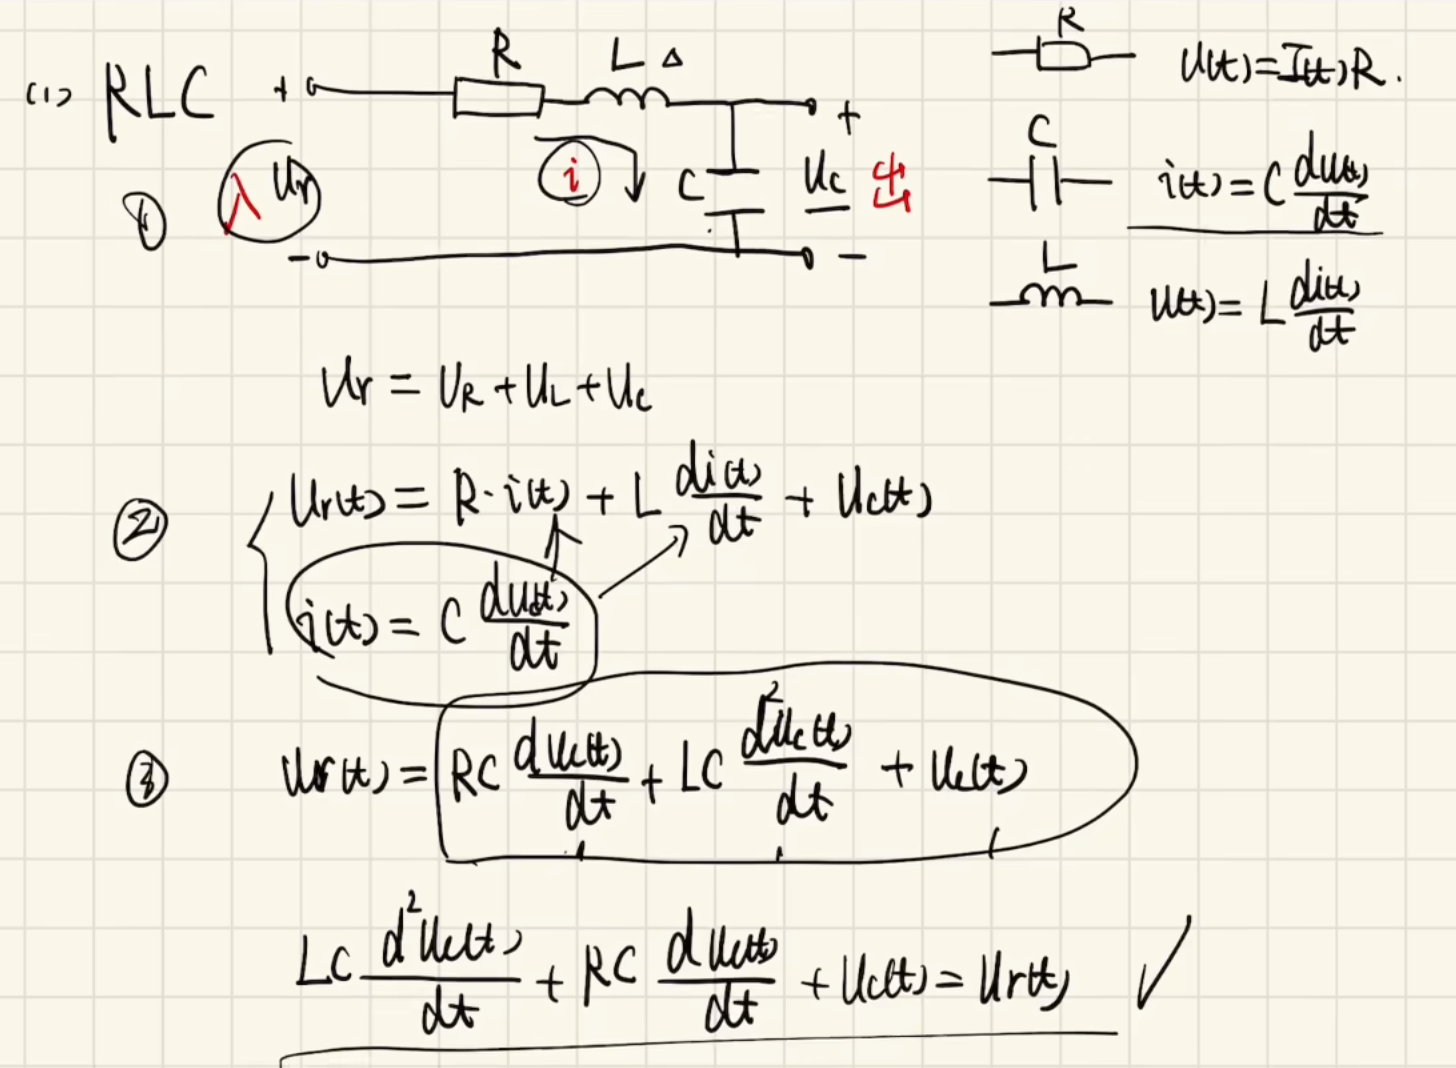 (1) RLC + R L Δ +
R U(t)=I(t)R.
① 入 Ur i C Uc 出
- -
C i(t)=C du(t)/dt
L U(t)=L di(t)/dt
Ur = UR+UL+Uc
② Ur(t)=R·i(t)+L di(t)/dt+Uc(t)
i(t)=C duc(t)/dt
③ Ur(t)=RC dUc(t)/dt+LC d²Uc(t)/dt+Uc(t)
LC d²Uc(t)/dt+RC dUc(t)/dt+Uc(t)=Ur(t) ✓